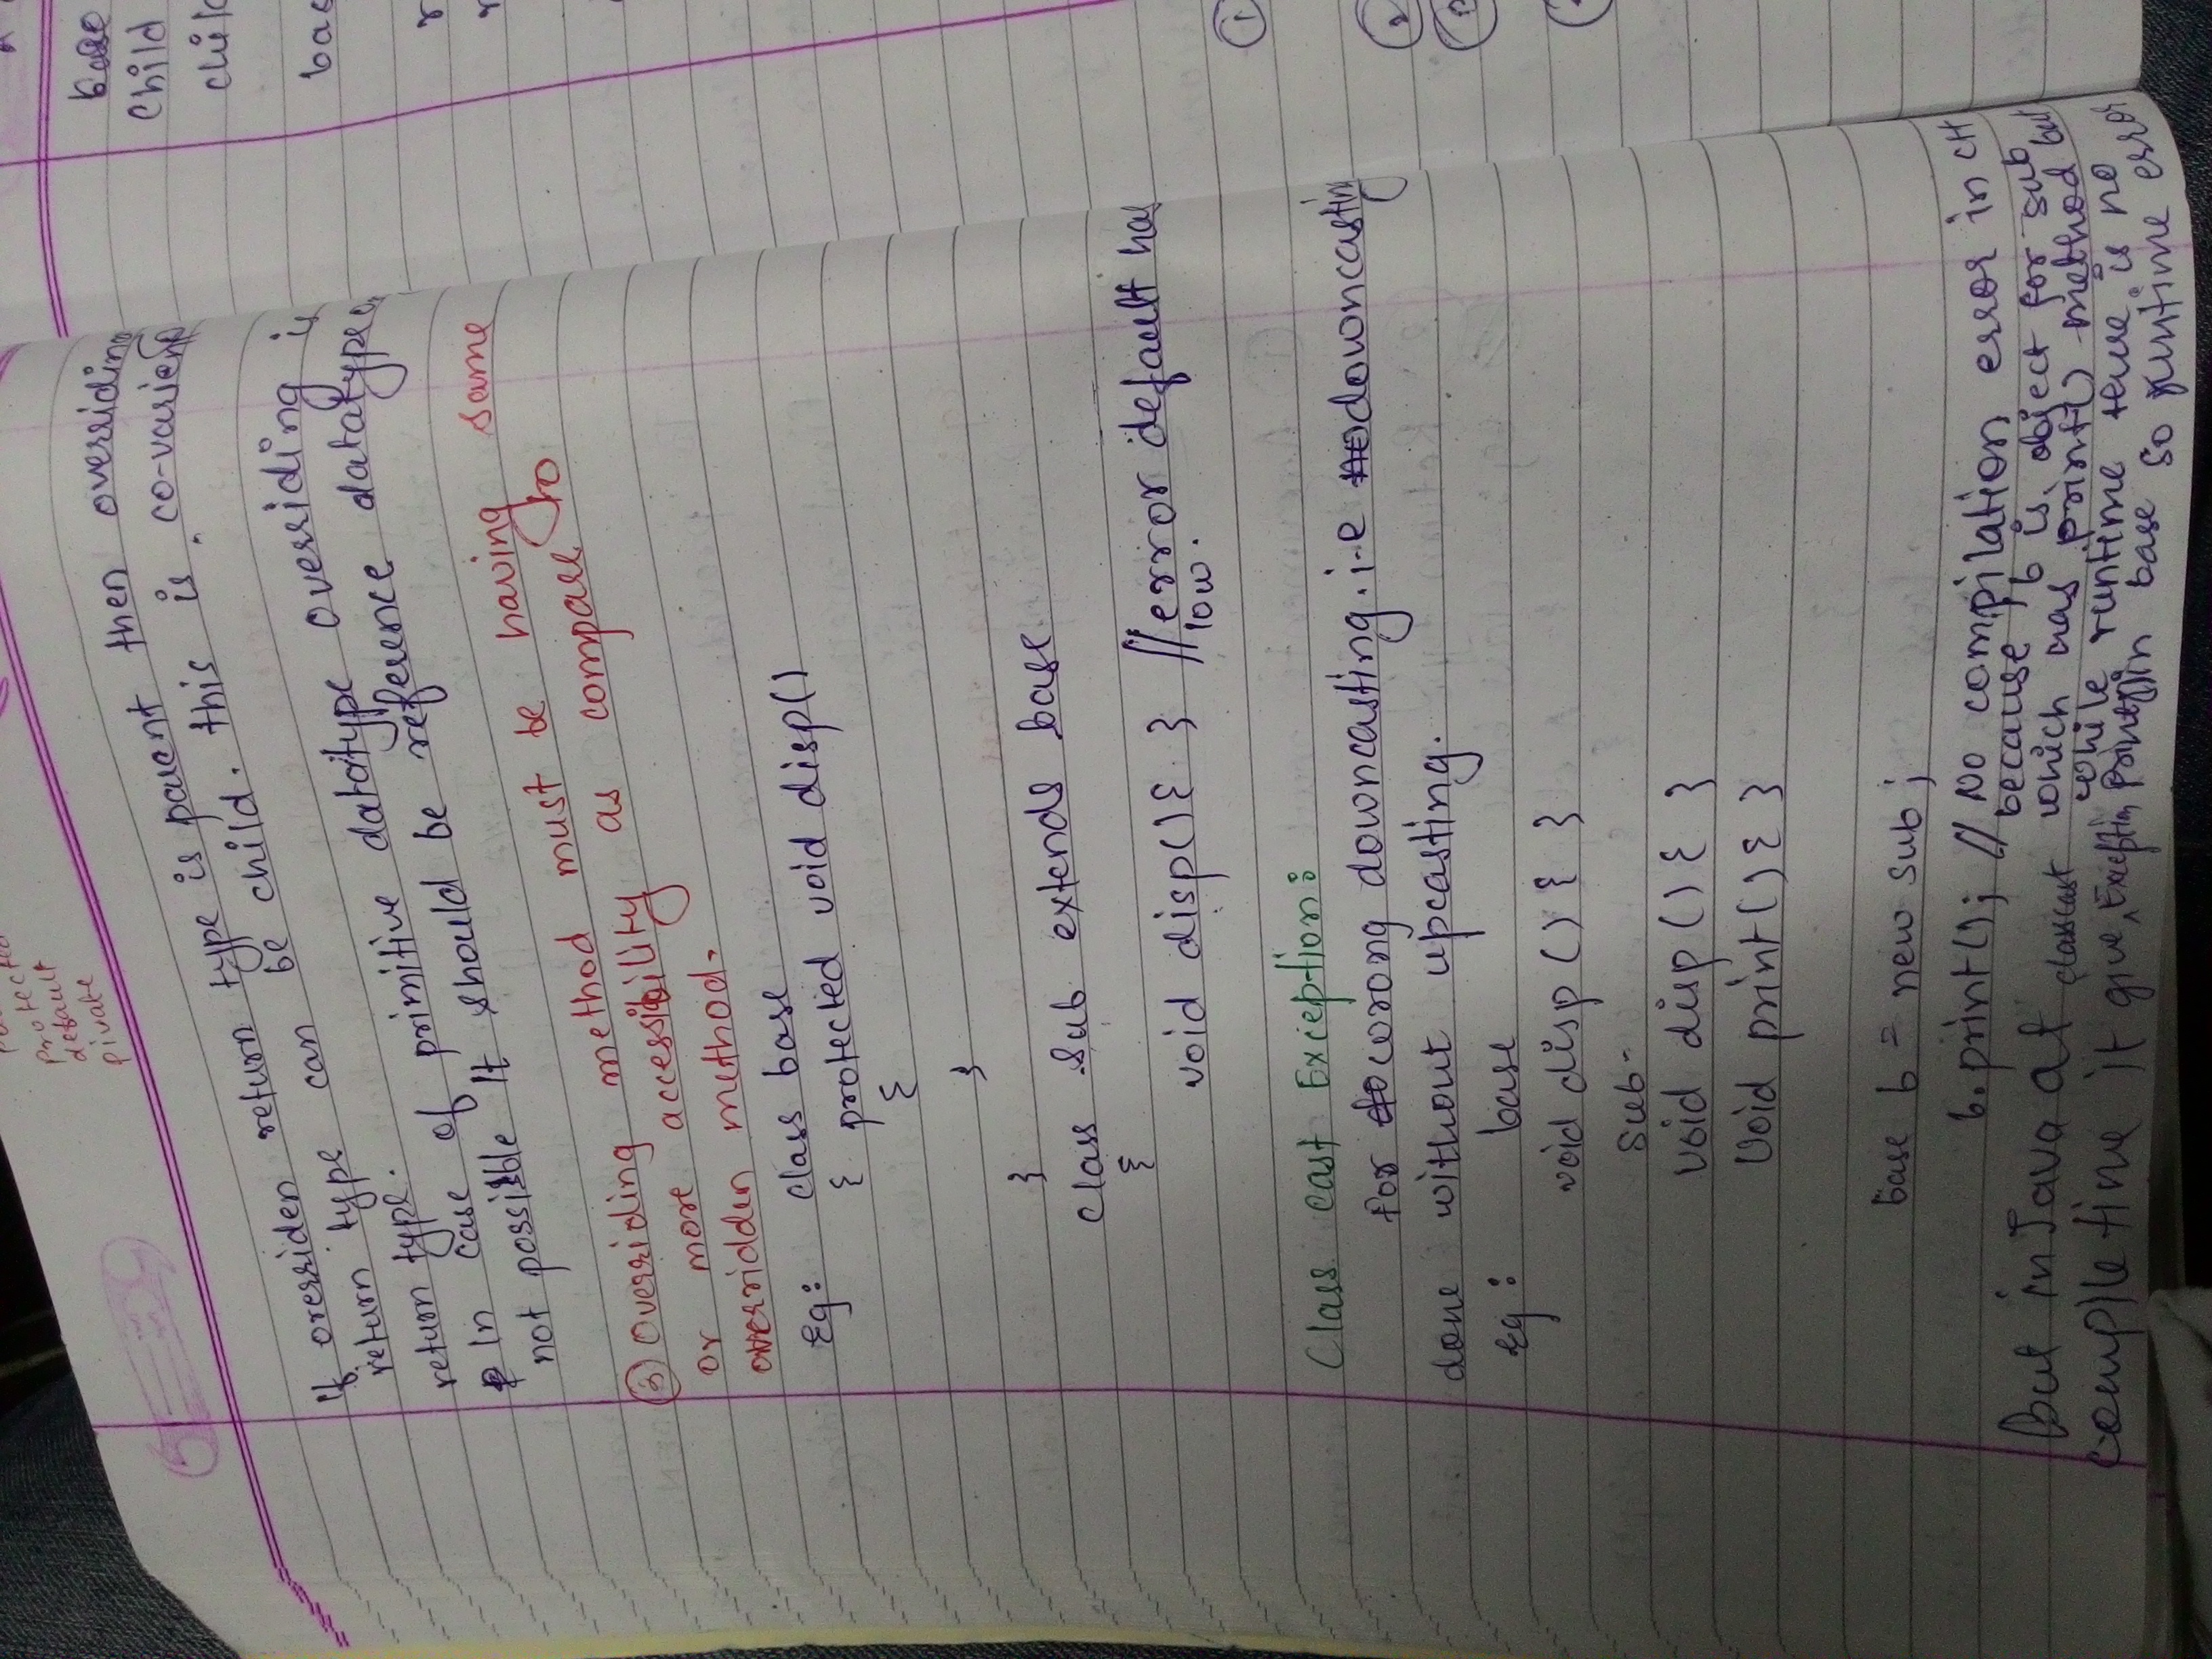 protected
default
pivate
If overriden return type is parent then overriding
return type can be child. this is co-varient
return type.
In case of primitive datatype overriding is
not possible It should be reference datatype.
③ Overriding method must be having same
or more accessibility as compare to
overridden method.
Eg: class base
{ protected void disp()
{
}
}
class Sub extends base
{
void disp(){ } //error default has
low.
Class cast Exception:
for worong downcasting. i-e downcasting
done without upcasting.
eg: base
void disp () { }
sub-
void disp () { }
Void print () { }
base b = new sub;
b.print(); // No compilation error in C++
because b is object for sub
which has print() method but
while runtime there is no
print() in base so runtime error
But in Java at
compile time it give classcast Exception
base
Child
child
bas
r
r
①
②
③